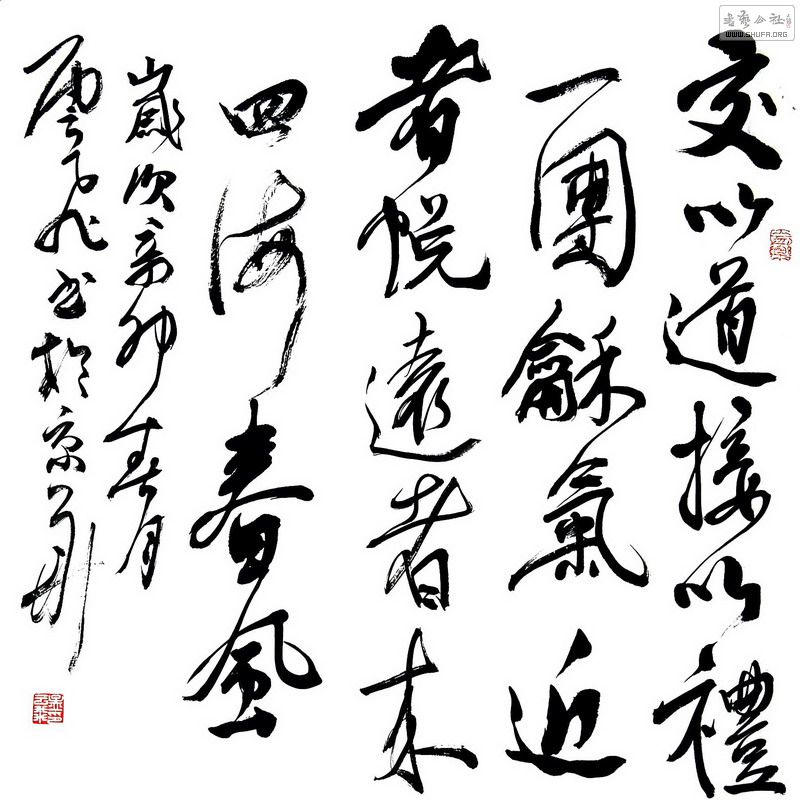 交以道接以禮
一團龢氣近
者悅遠者来
四海春風
歲次辛卯春月
雲飛书於京華
書藝公社
WWW.SHUFA.ORG